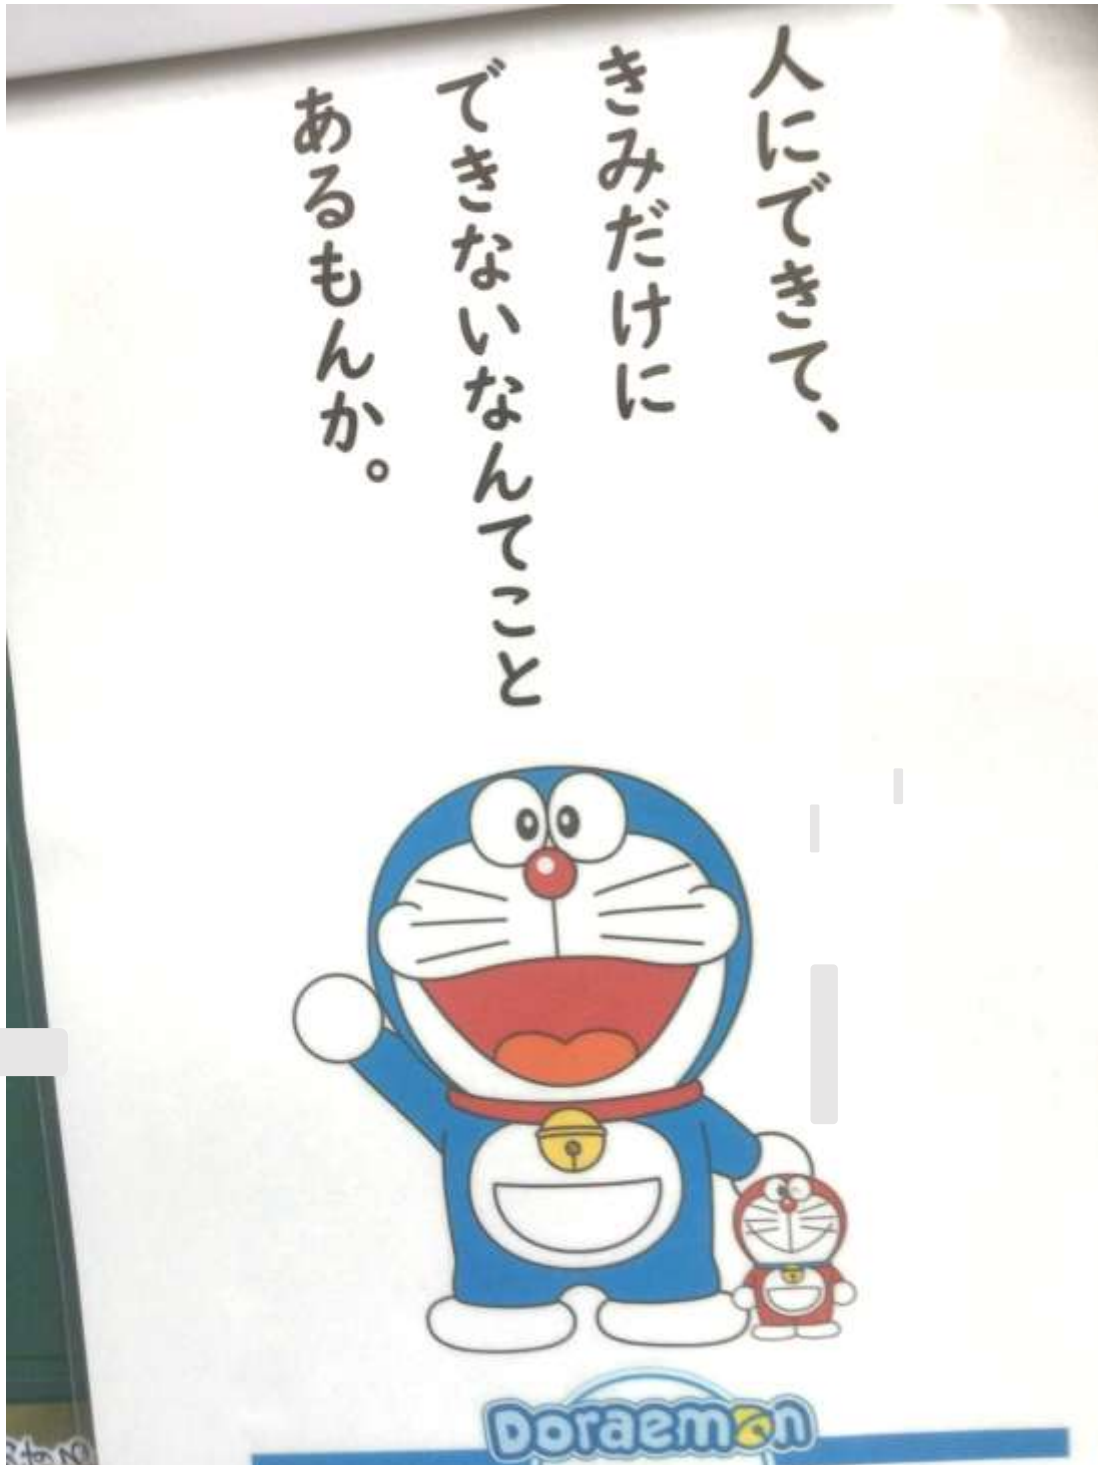 人にできて、
きみだけに
できないなんてこと
あるもんか。
Doraemon